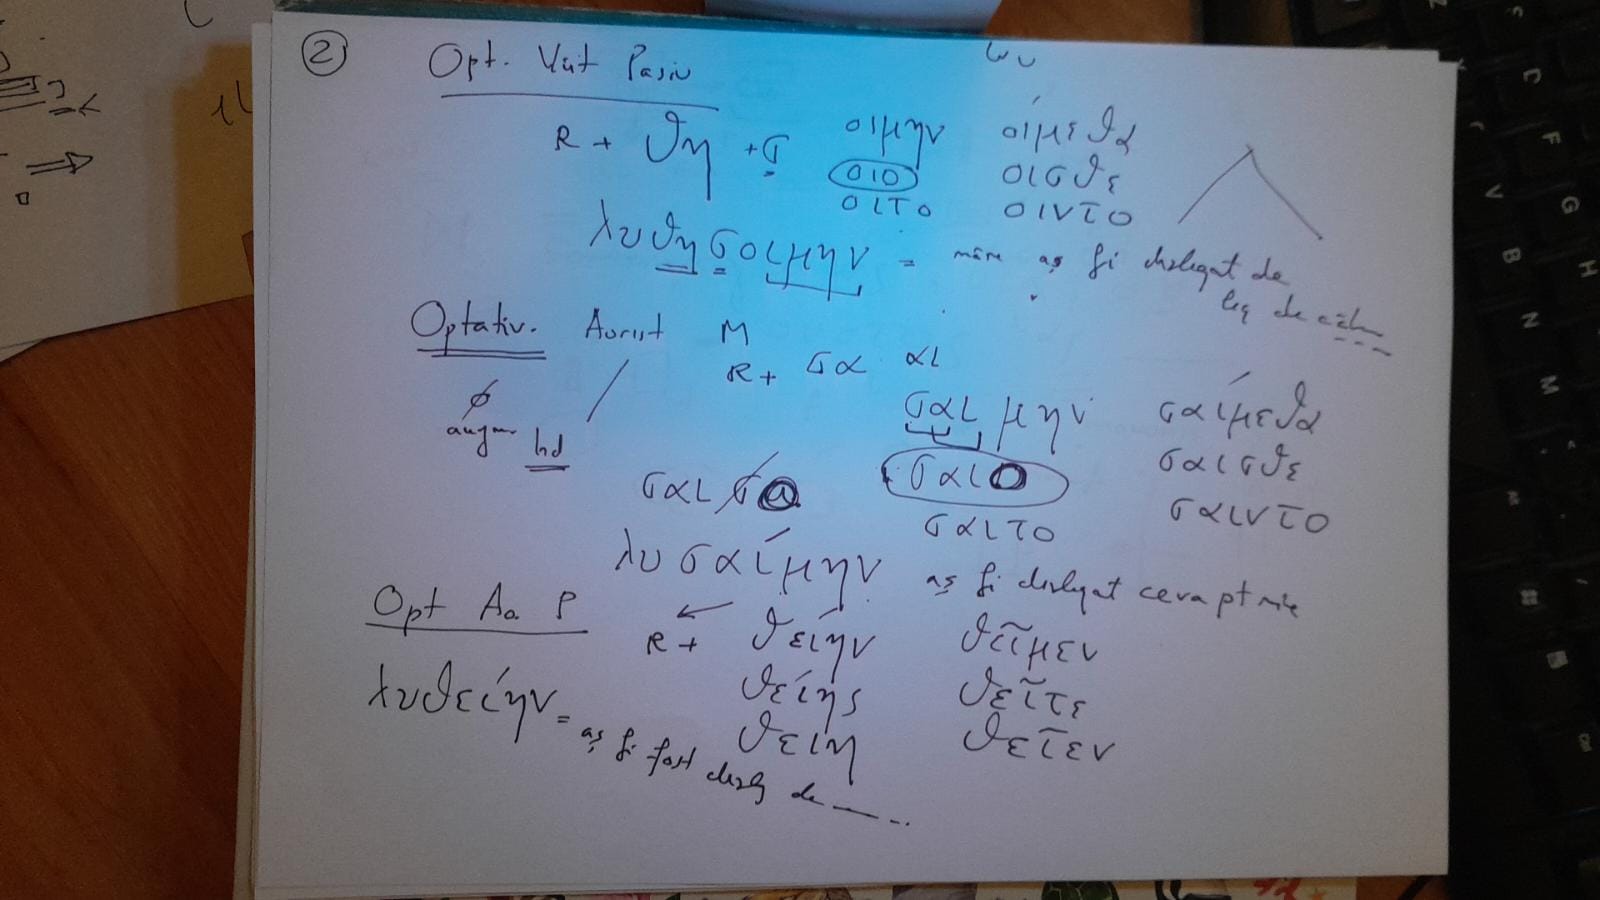 ② Opt. Viit Pasiv
R + ϑη + σ οιμην οίμεϑα
οιο οισϑε
οιτο οιντο
λυϑησοιμην = mâine aș fi dezlegat de
leg de către
Optativ. Aorist M
R + σα αι
∅
augm. Ind
σαιμην σαίμεϑα
σαισο σαιο σαισϑε
σαιτο σαιντο
λυσαίμην aș fi dezlegat ceva pt mine
Opt Ao. P
R + ϑείην ϑεῖμεν
λυϑείην = ϑείης ϑεῖτε
ϑειη ϑεῖεν
aș fi fost dezleg de